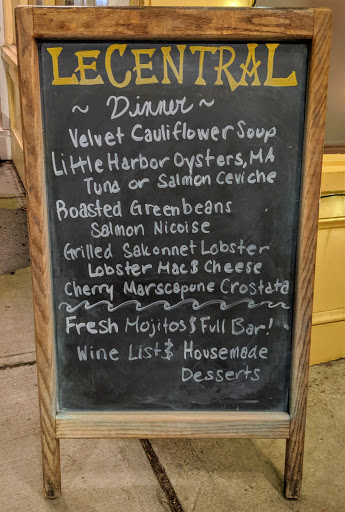 LECENTRAL
~ Dinner ~
Velvet Cauliflower Soup
Little Harbor Oysters, MA
Tuna or Salmon Ceviche
Roasted Greenbeans
Salmon Nicoise
Grilled Sakonnet Lobster
Lobster Mac & Cheese
Cherry Marscapone Crostata
Fresh Mojitos & Full Bar!
Wine List & Housemade
Desserts